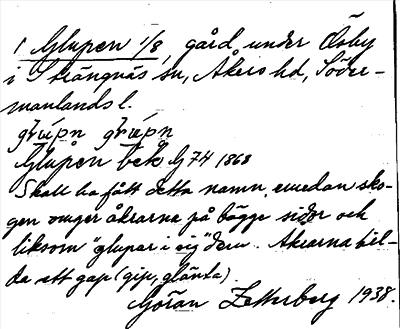 1 Glupen 1/8, gård under Åsby
i Strängnäs sn, Åkers hd, Söder-
manlands l.
Glupen bek G74 1868
Skall ha fått detta namn, emedan sko-
gen omger åkrarna på bägge sidor och
liksom "glupar i sig" dem. Åkrarna bil-
da ett gap (gip, glänta)
Göran Zetterberg 1938.